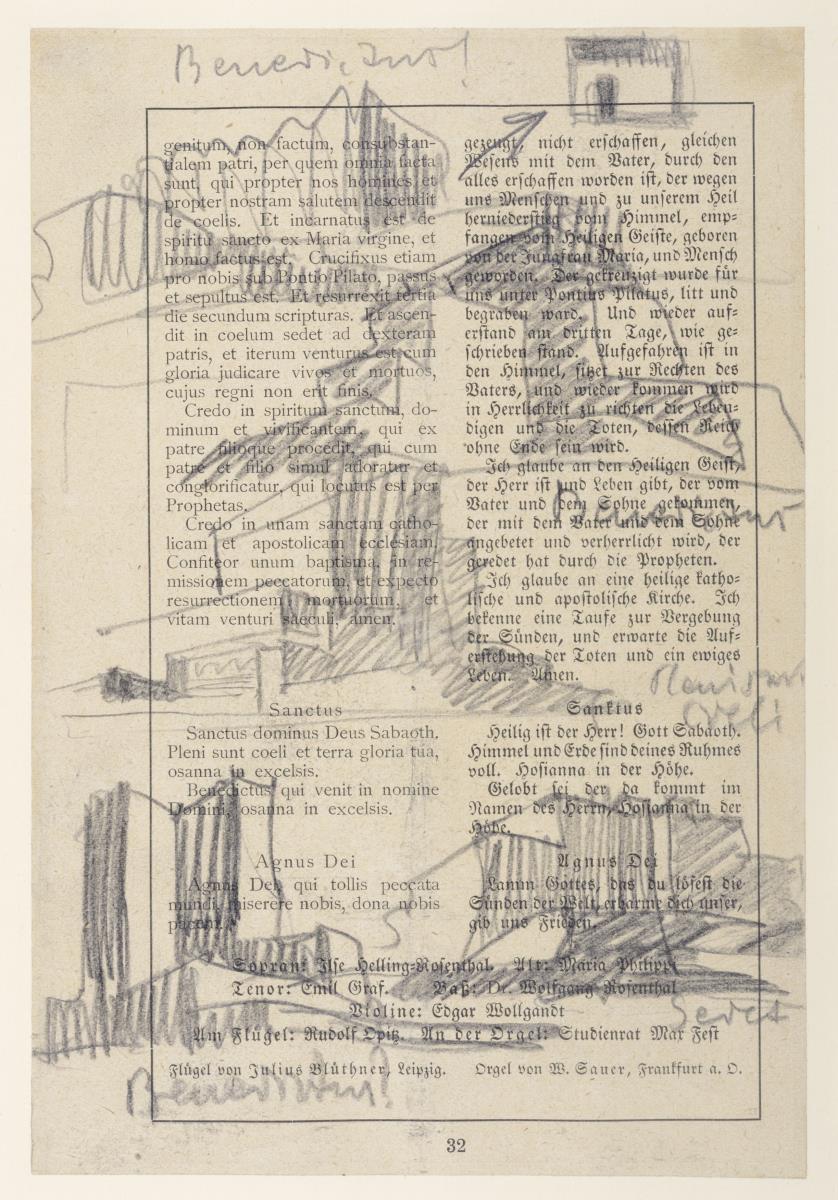 Benedictus!
genitum, non factum, consubstan-
tialem patri, per quem omnia facta
sunt, qui propter nos homines et
propter nostram salutem descendit
de coelis. Et incarnatus est de
spiritu sancto ex Maria virgine, et
homo factus est. Crucifixus etiam
pro nobis sub Pontio Pilato, passus
et sepultus est. Et resurrexit tertia
die secundum scripturas. Et ascen-
dit in coelum sedet ad dexteram
patris, et iterum venturus est cum
gloria judicare vivos et mortuos,
cujus regni non erit finis.
Credo in spiritum sanctum, do-
minum et vivificantem, qui ex
patre filioque procedit, qui cum
patre et filio simul adoratur et
conglorificatur, qui locutus est per
Prophetas.
Credo in unam sanctam catho-
licam et apostolicam ecclesiam,
Confiteor unum baptisma, in re-
missionem peccatorum, et expecto
resurrectionem mortuorum, et
vitam venturi saeculi, amen.
Sanctus
Sanctus dominus Deus Sabaoth.
Pleni sunt coeli et terra gloria tua,
osanna in excelsis.
Benedictus, qui venit in nomine
Domini, osanna in excelsis.
Agnus Dei
Agnus Dei, qui tollis peccata
mundi, miserere nobis, dona nobis
pacem.
gezeugt, nicht erschaffen, gleichen
Wesens mit dem Vater, durch den
alles erschaffen worden ist, der wegen
uns Menschen und zu unserem Heil
herniederstieg vom Himmel, emp-
fangen vom Heiligen Geiste, geboren
von der Jungfrau Maria, und Mensch
geworden. Der gekreuzigt wurde für
uns unter Pontius Pilatus, litt und
begraben ward. Und wieder auf-
erstand am dritten Tage, wie ge-
schrieben stand. Aufgefahren ist in
den Himmel, sitzet zur Rechten des
Vaters, und wieder kommen wird
in Herrlichkeit zu richten die Leben-
digen und die Toten, dessen Reich
ohne Ende sein wird.
Ich glaube an den Heiligen Geist,
der Herr ist und Leben gibt, der vom
Vater und dem Sohne gekommen,
der mit dem Vater und dem Sohne
angebetet und verherrlicht wird, der
geredet hat durch die Propheten.
Ich glaube an eine heilige katho-
lische und apostolische Kirche. Ich
bekenne eine Taufe zur Vergebung
der Sünden, und erwarte die Auf-
erstehung der Toten und ein ewiges
Leben. Amen.
Sanktus
Heilig ist der Herr! Gott Sabaoth.
Himmel und Erde sind deines Ruhmes
voll. Hosianna in der Höhe.
Gelobt sei der da kommt im
Namen des Herrn, Hosianna in der
Höhe.
Agnus Dei
Lamm Gottes, das du lösest die
Sünden der Welt, erbarme dich unser,
gib uns Frieden.
Benedictus
coeli
Sopran: Ilse Helling-Rosenthal. Alt: Maria Philippi
Tenor: Emil Graf. Baß: Dr. Wolfgang Rosenthal
Violine: Edgar Wollgandt
Am Flügel: Rudolf Opitz. An der Orgel: Studienrat Max Fest
Flügel von Julius Blüthner, Leipzig. Orgel von W. Sauer, Frankfurt a. O.
Benedictus!
32